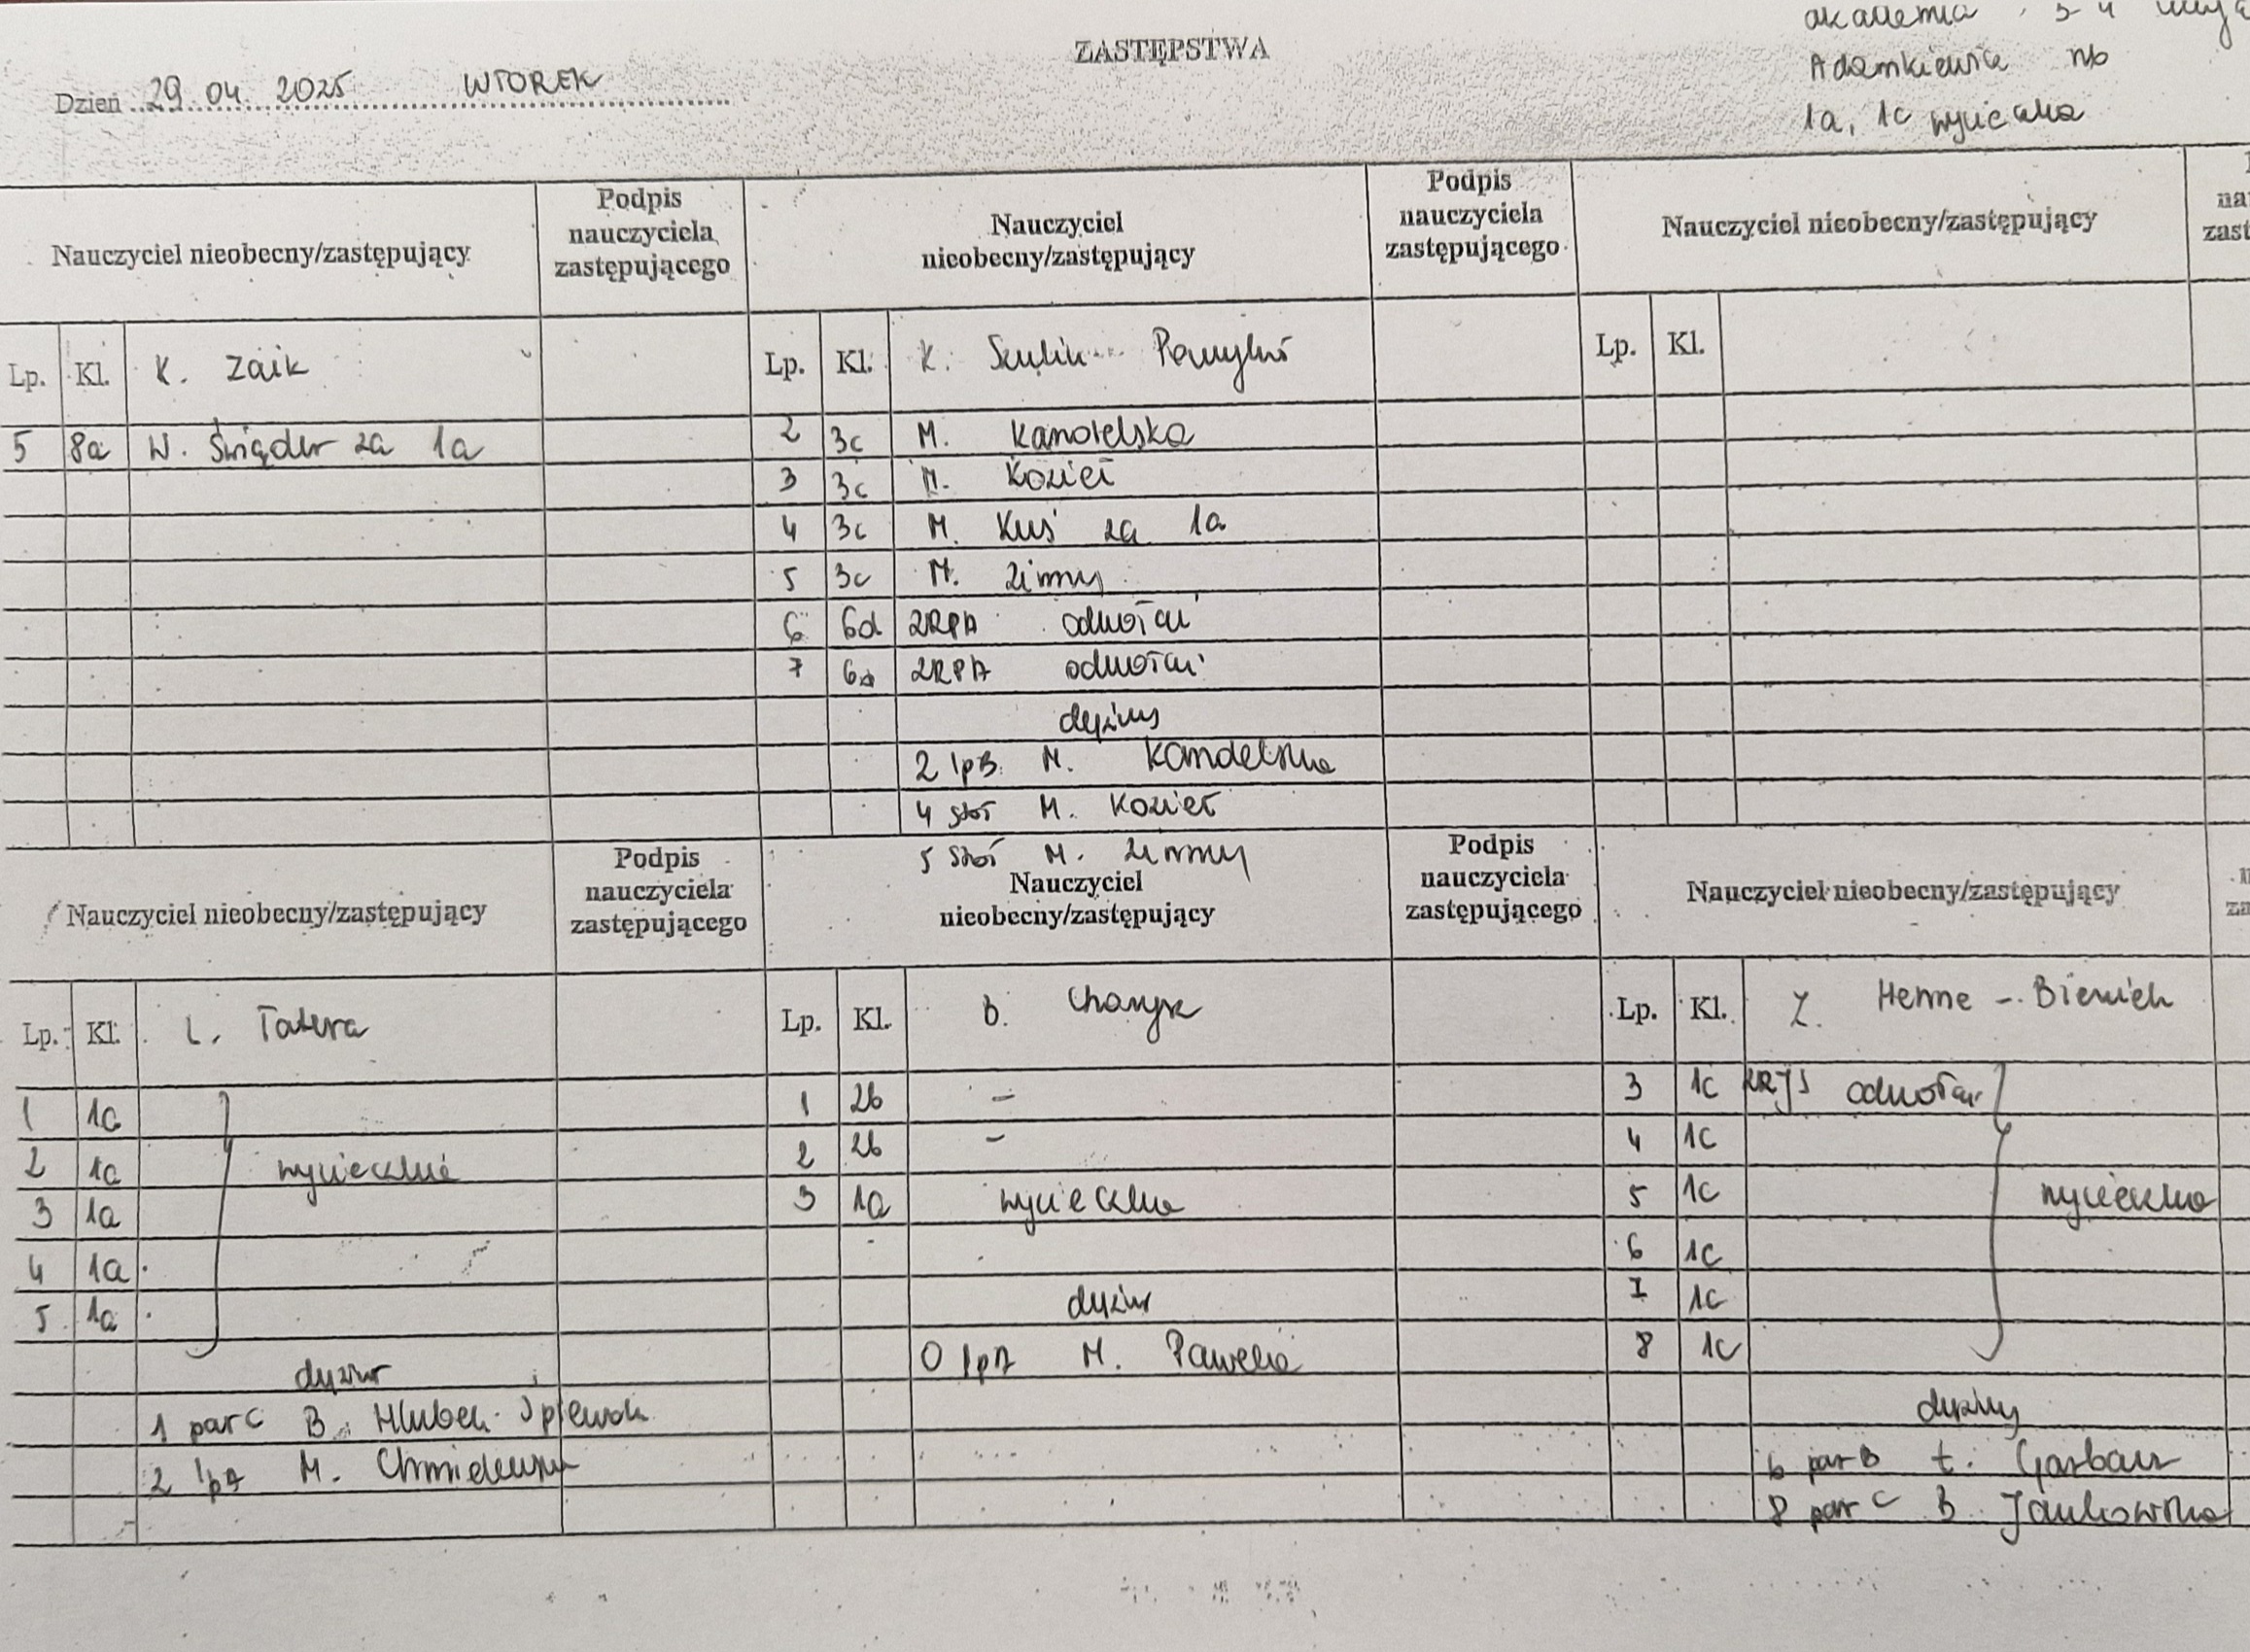 akademia 3-4
Adamkiewicz nb
1a, 1c wycieczka
ZASTĘPSTWA
Dzień 29 04 2025 WTOREK
Nauczyciel nieobecny/zastępujący
Podpis
nauczyciela
zastępującego
Lp. Kl. K. Zaik
5 8a W. Świąder za 1a
Nauczyciel
nieobecny/zastępujący
Podpis
nauczyciela
zastępującego
Lp. Kl. K.
2 3c M. Kandelska
3 3c M. Kozieł
4 3c M. Kuś za 1a
5 3c M. Zimny
6 6d ZRPA odwołać
7 6a ZRPA odwołać
dyżury
2 IpB M. Kandelska
4 stoł M. Kozieł
5 stoł M. Zimny
Nauczyciel nieobecny/zastępujący
Lp. Kl.
Nauczyciel nieobecny/zastępujący
Podpis
nauczyciela
zastępującego
Lp. Kl. L. Tatera
1 1a
2 1a wycieczka
3 1a
4 1a
5 1a
dyżur
1 par C B. Hlubek-Śpiewok
2 IpA M. Chmielewska
Nauczyciel
nieobecny/zastępujący
Podpis
nauczyciela
zastępującego
Lp. Kl. B.
1 2b –
2 2b –
3 1a wycieczka
dyżur
0 IpA M. Pawełka
Nauczyciel nieobecny/zastępujący
Lp. Kl. Z. Henne - Bieniek
3 1c odwołać
4 1c
5 1c wycieczka
6 1c
7 1c
8 1c
dyżury
6 par B Ł. Garbacz
8 par C B. Jankowska